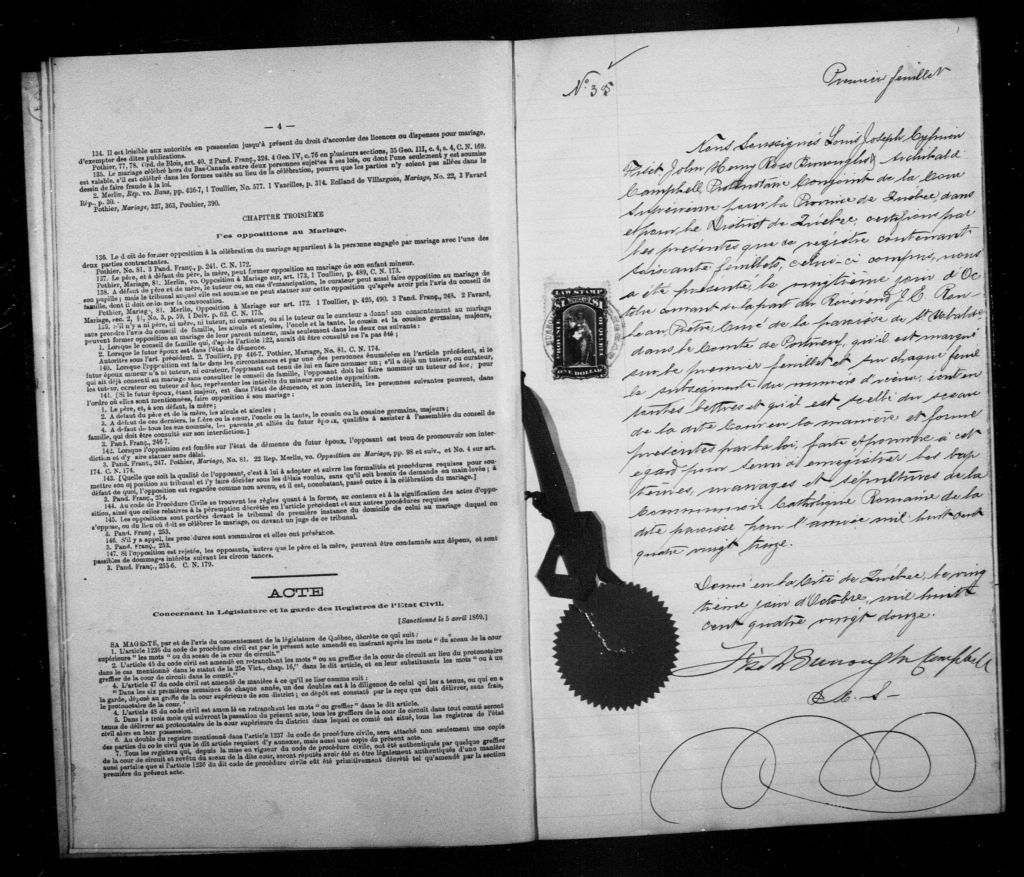 — 4 —
134. Il est loisible aux autorités en possession jusqu'à présent du droit d'accorder des licences ou dispenses pour mariage,
d'exempter des dites publications.
Pothier, 77, 78. Ord. de Blois, art. 40, 2 Pand. Franç., 224. 4 Geo. IV, c. 76 en plusieurs sections, 35 Geo. III, c. 4, s. 4, C. N. 169.
135. Le mariage célébré hors du Bas-Canada entre deux personnes sujettes à ses lois, ou dont l'une seulement y est soumise
est valable, s'il est célébré dans les formes usitées au lieu de la célébration, pourvu que les parties n'y soient pas allées dans le
dessin de faire fraude à la loi.
2. Merlin, Rép. vo. Bans, pp. 436-7, 1 Toullier, No. 577. 1 Vazeilles, p. 314. Rolland de Villargues, Mariage, No. 22, 3 Favard
Rép., p. 30.
Pothier, Mariage, 327, 363, Pouhier, 390.
CHAPITRE TROISIÈME
Des oppositions au Mariage.
136. Le droit de former opposition à la célébration du mariage appartient à la personne engagée par mariage avec l'une des
deux parties contractantes.
Pothier, No. 81. 3 Pand. Franç., p. 241. C. N. 172.
137. Le père, et à défaut du père, la mère, peut former opposition au mariage de son enfant mineur.
Pothier, Mariage, 81. Merlin, vo. Opposition à Mariage, sur art. 173, 1 Toullier, p. 489, C. N. 173.
138. A défaut de père et de mère, le tuteur, ou, au cas d'émancipation, le curateur peut aussi faire opposition au mariage de
son pupille; mais le tribunal auquel elle est soumise ne peut statuer sur cette opposition qu'après avoir pris l'avis du conseil de
famille, dont il doit ordonner la convocation.
Pothier, Mariage, 81. Merlin, Opposition à Mariage sur art. 172. 1 Toullier, p. 425, 490. 3 Pand. Franç., 248. 2 Favard,
Mariage, sec. 2, § 1, No. 3, p. 59. 1 Delv. p. 62, C. N. 175.
139. S'il n'y a ni père, ni mère, ni tuteur, ni curateur, ou si le tuteur ou le curateur a donné son consentement au mariage
sans prendre l'avis du conseil de famille, les aïeuls et aïeules, l'oncle et la tante, le cousin et la cousine germains, majeurs,
peuvent former opposition au mariage de leur parent mineur, mais seulement dans les deux cas suivants:
1. Lorsque le conseil de famille qui, d'après l'article 122, aurait dû être consulté ne l'a pas été;
2. Lorsque le futur époux est dans l'état de démence.
Autorités sous l'art. précédent. 2. Toullier, pp 446-7. Pothier, Mariage, No. 81. C. N. 174.
140. Lorsque l'opposition est faite dans les circonstances et par une des personnes énumérées en l'article précédent, si le
futur époux mineur n'a ni tuteur, ni curateur, l'opposant est tenu de lui en faire nommer un; s'il a déjà un tuteur, ou curateur,
qui ait déjà consenti au mariage sans consulter le conseil de famille, l'opposant doit lui faire nommer un tuteur ad hoc; pour
les tuteur, curateur ou tuteur ad hoc, représenter les intérêts du mineur sur cette opposition.
141. [Si le futur époux, étant majeur, est dans l'état de démence, et non interdit, les personnes suivantes peuvent, dans
l'ordre où elles sont mentionnées, faire opposition à son mariage:
1. Le père, et, à son défaut, la mère;
2. A défaut du père et de la mère, les aïeuls et aïeules;
3. A défaut de ces derniers, le frère ou la sœur, l'oncle ou la tante, le cousin ou la cousine germains, majeurs;
4. A défaut de tous les sus nommés, les parents et alliés du futur époux, qualifiés à assister à l'assemblée du conseil de
famille, qui doit être consulté sur son interdiction.]
3. Pand. Franç., 246-7.
142. Lorsque l'opposition est fondée sur l'état de démence du futur époux, l'opposant est tenu de promouvoir son inter-
diction et d'y faire statuer sans délai.
3. Pand. Franç., 247. Pothier, Mariage, No. 81. 22 Rep. Merlin, vo. Opposition au Mariage, pp. 98 et suiv., et No. 4 sur art.
174. C. N. 174.
143. [Quelle que soit la qualité de l'opposant, c'est à lui à adopter et suivre les formalités et procédures requises pour sou-
mettre son opposition au tribunal et l'y faire décider sous les délais voulus, sans qu'il soit besoin de demande en main-levée; à
défaut de quoi, l'opposition est regardée comme non avenue, et il est, nonobstant, passé outre à la célébration du mariage.]
3. Pand. Franç., 254.
144. Au code de Procédure Civile se trouvent les règles quant à la forme, au contenu et à la signification des actes d'oppo-
sition, ainsi que celles relatives à la péremption décrétée en l'article précédent et aux autres procédures requises
145. Les oppositions sont portées devant le tribunal de première instance du domicile de celui au mariage duquel on
s'oppose, ou du lieu où doit se célébrer le mariage, ou devant un juge de ce tribunal.
3. Pand. Franç., 253.
146. S'il y a appel, les procédures sont sommaires et elles ont préséance.
3. Pand. Franç., 253.
147. Si l'opposition est rejetée, les opposants, autres que le père et la mère, peuvent être condamnés aux dépens, et sont
passibles de dommages-intérêts suivant les circonstances.
3. Pand. Franç., 255-6. C. N. 179.
ACTE
Concernant la Législature et la garde des Registres de l'Etat Civil.
[Sanctionné le 5 avril 1869.]
SA MAGESTÉ, par et de l'avis du consentement de la législature de Québec, décrète ce qui suit:
1. L'article 1236 du code de procédure civil est par le présent acte amendé en insérant après les mots "du sceau de la cour
supérieure" les mots "ou du sceau de la cour de circuit."
2. L'article 45 du code civil est amendé en retranchant les mots "ou au greffier de la cour de circuit au lieu du protonotaire
dans le cas mentionné dans le statut de la 25e Vict., chap. 16," dans le dit article, et en leur substituant les mots "ou à un
greffier de la cour de circuit dans le comté."
3. L'article 47 du code civil est amendé de manière à ce qu'il se lise comme suit:
"Dans les six premières semaines de chaque année, un des doubles est à la diligence de celui qui les a tenus, ou qui en a
la garde, déposé au greffe de la cour supérieure de son district; ce dépôt est constaté par le reçu que doit délivrer, sans frais,
le protonotaire de la cour."
4. L'article 48 du code civil est amendé en retranchant les mots "ou greffier" dans le dit article.
5. Dans les trois mois qui suivront la passation du présent acte, tous les greffiers de la cour de circuit dans tout comté seront
tenus de délivrer au protonotaire de la cour supérieure du district dans lequel ce comté est situé, tous les registres de l'état
civil alors en leur possession.
6. Au double du registre mentionné dans l'article 1237 du code de procédure civile, sera attaché non seulement une copie
des parties du code civil que le dit article requiert d'y annexer, mais aussi une copie du présent acte.
7. Tous les registres qui, depuis la mise en vigueur du code de procédure civile, ont été authentiqués par quelque greffier
de la cour de circuit et revêtu du sceau de la dite cour, seront réputés avoir été et être légalement authentiqués d'une manière
aussi parfaite que si l'article 1236 du dit code de procédure civile eût été primitivement décrété tel qu'amendé par la section
première du présent acte.
No. 35
Premier feuillet
Nous Soussignés Louis Joseph Cyprien
Fiset John Henry Ross Burroughs & Archibald
Campbell Protonotaire Conjoint de la Cour
Supérieure pour la Province de Québec dans
et pour le District de Québec, certifions par
les présentes que ce registre contenant
soixante feuillets, celui-ci compris, nous
a été présenté, le vingtième jour d'Oc-
tobre courant de la part du Révérend J. E. Rou-
leau Prêtre Curé de la paroisse de St Ubalde
dans le Comté de Portneuf, qu'il est marqué
sur le premier feuillet et sur chaque feuil
le subséquente du numéro d'icelui, écrit en
toutes lettres et qu'il est scellé du sceau
de la dite Cour en la manière et forme
prescrites par la loi, faite & pourvue à cet
égard pour servir à enregistrer les bap
têmes, mariages et sépultures de la
Communion Catholique Romaine de la
dite paroisse pour l'année mil huit cent
quatre vingt treize.
Donné en la Cité de Québec, le ving
tième jour d'Octobre, mil huit
cent quatre vingt douze.
Fiset Burroughs Campbell
P. C. S.
LAW STAMP
PROVINCE
OF QUEBEC
ONE DOLLAR